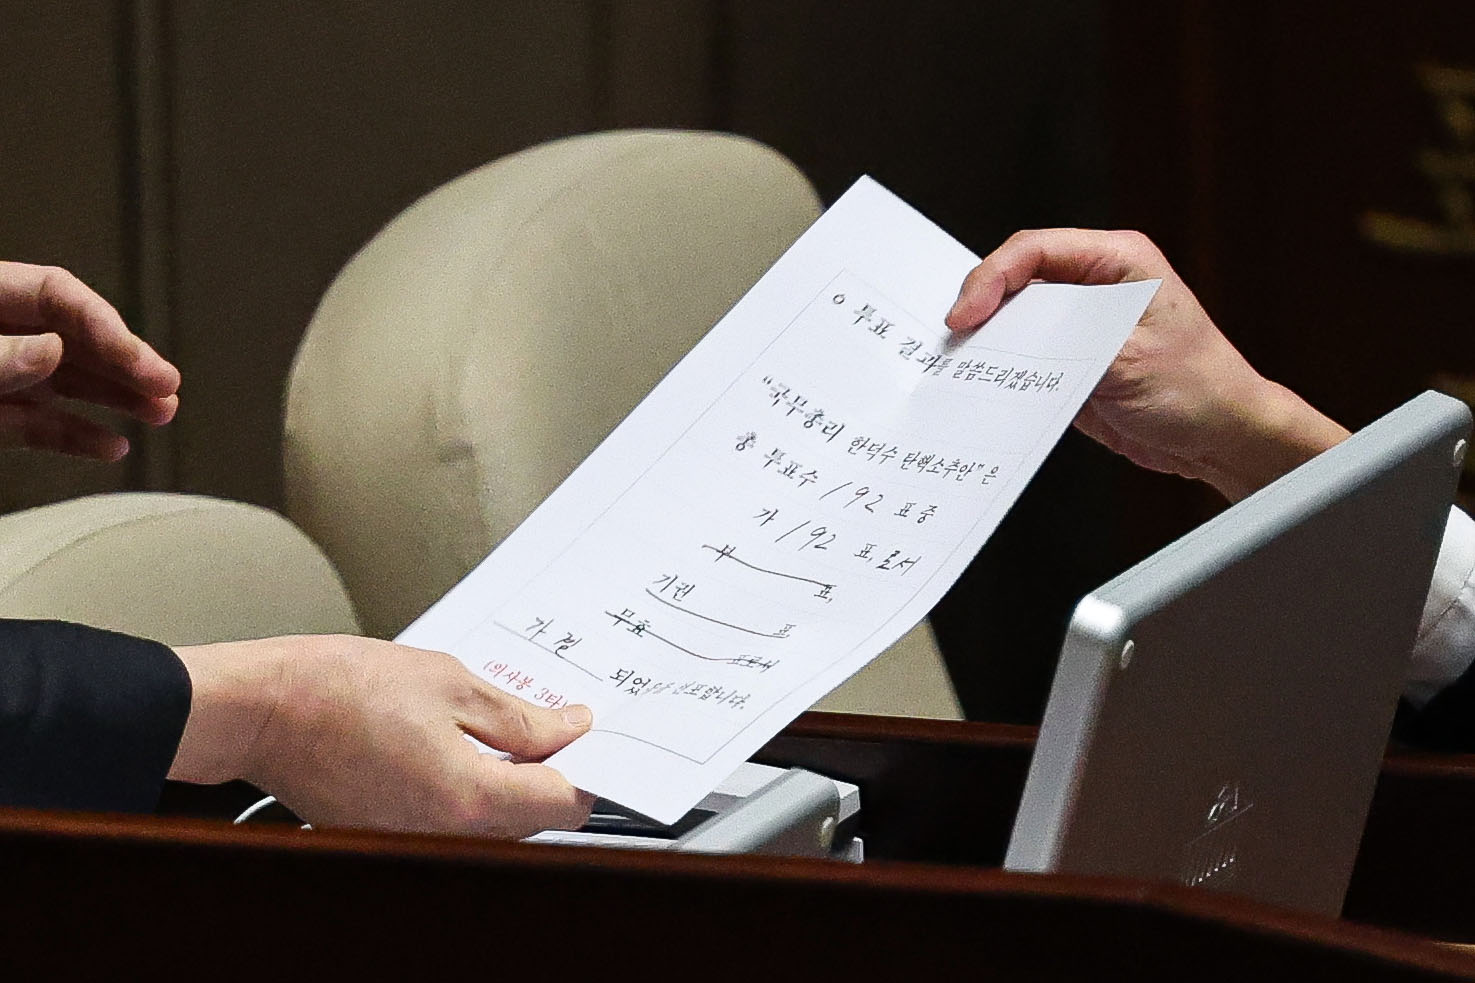 ○ 투표 결과를 말씀드리겠습니다.
"국무총리 한덕수 탄핵소추안"은
총 투표수 192 표 중
가 192 표, 로서
부 표,
기권 표
무효 표로서
가결 되었음을 선포합니다.
(의사봉 3타)